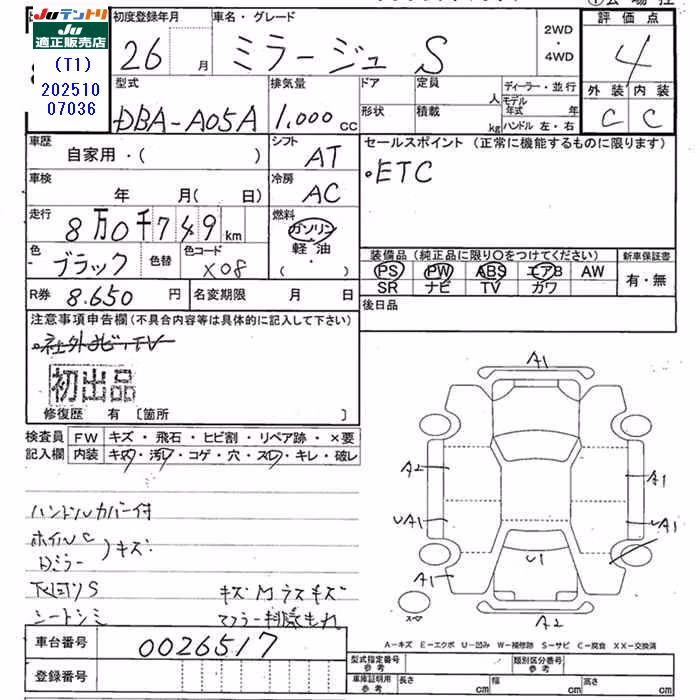 JU テントリ
JU適正販売店
(T1)
202510
07036
初度登録年月
26 月
車名・グレード
ミラージュ S
2WD
・
4WD
評価点
4
外装 内装
C C
型式
DBA-A05A
排気量
1,000 CC
ドア
形状
定員 人
積載 kg
ディーラー・並行
モデル年式 年
ハンドル 左・右
車歴
自家用・( )
シフト
AT
セールスポイント (正常に機能するものに限ります)
・ETC
車検
年 月( 日)
冷房
AC
走行
8万0千749 km
燃料
ガソリン
軽油
( ・ )
色
ブラック
色替
色コード
X08
装備品 (純正品に限り○をつけてください)
PS PW ABS エアB AW
SR ナビ TV カワ
新車保証書
有・無
R券 8.650 円
名変期限 月 日
後日品
注意事項申告欄(不具合内容等は具体的に記入して下さい)
・社外ナビ、TV
初出品
修復歴 有 〔箇所 〕
検査員 FW キズ・飛石・ヒビ割・リペア跡・×要
記入欄 内装 キズ・汚レ・コゲ・穴・スレ・キレ・破レ
ハンドルカバー付
ホイルC
Dミラー )キズ・
下回りS
シートシミ
キズ M ラス キズ
A1
A2
A1
UA1
UA1
A1
U1
A2
スペア
A-キズ E-エクボ U-凹み W-補修跡 S-サビ C-腐食 XX-交換済
車台番号 0026517
登録番号
型式指定番号
参考
類別区分番号
参考
車庫証明用
参考
長さ cm
幅 cm
高さ cm